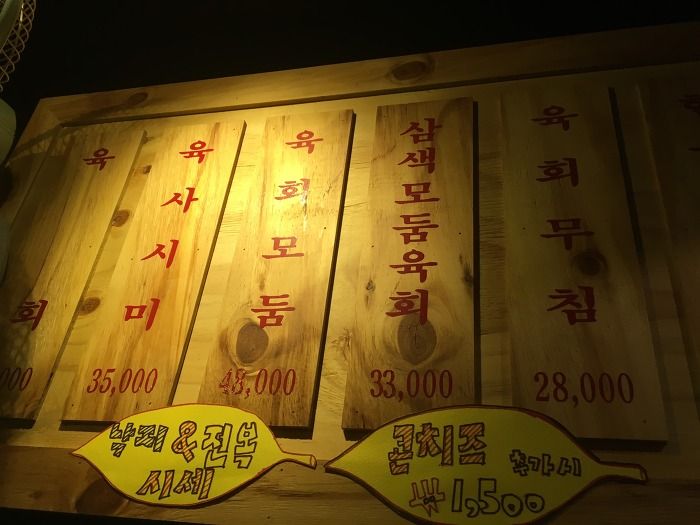 육회
000
육사시미
35,000
육회모둠
48,000
삼색모둠육회
33,000
육회무침
28,000
낙지&전복
시세
콘치즈 추가시
₩1,500